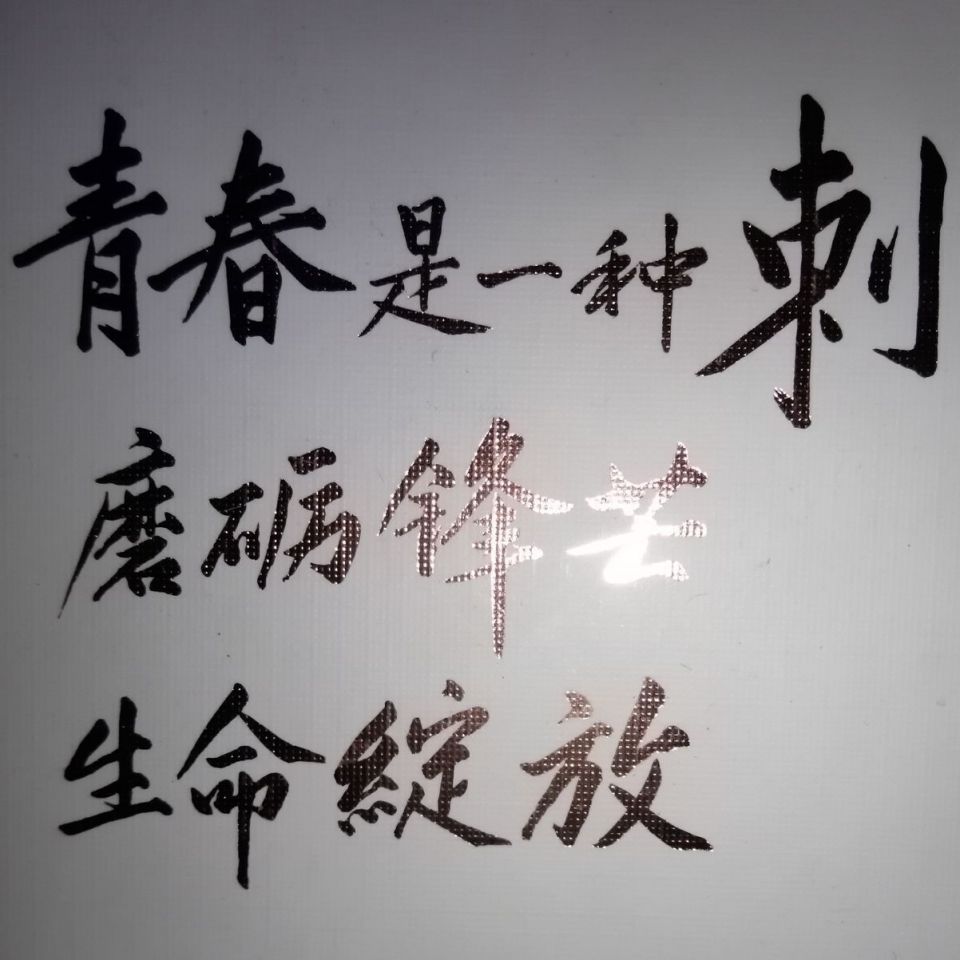 青春是一种刺
磨砺锋芒
生命綻放